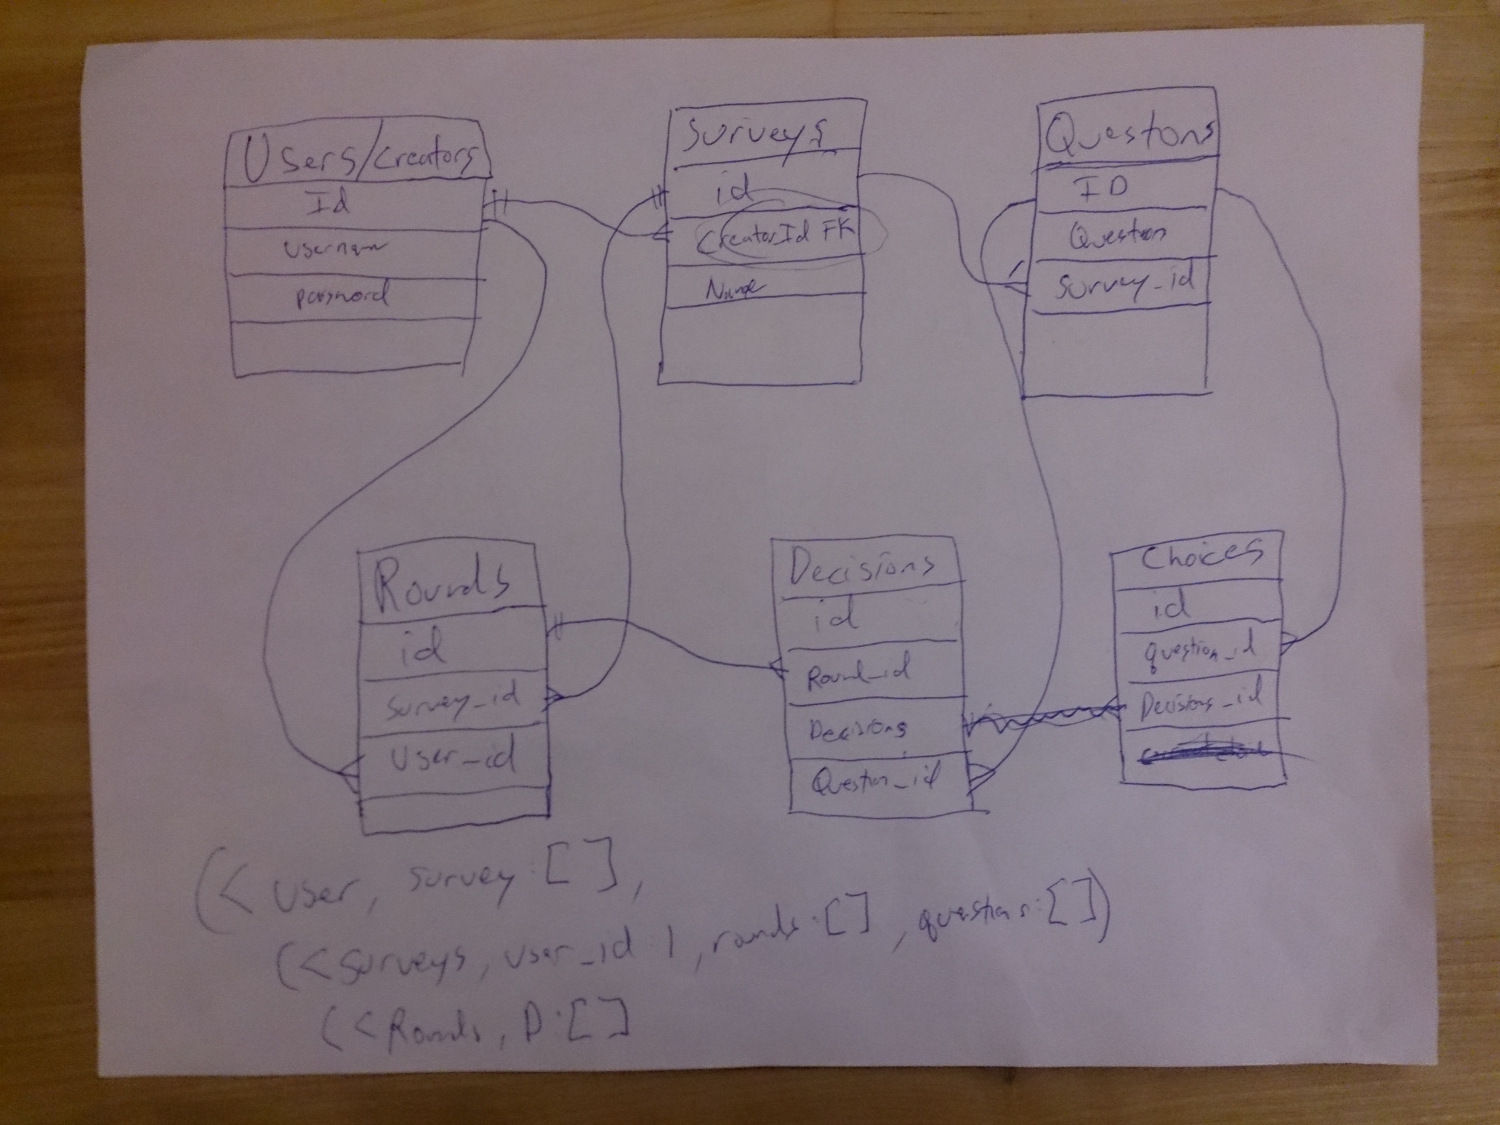 Users/Creators
Id
username
password
Surveys
id
CreatorId FK
Name
Questions
ID
Question
Survey_id
Rounds
id
survey_id
User_id
Decisions
id
Round_id
Decisions
Question_id
Choices
id
question_id
Decisions_id
(< user, survey:[],
(< surveys, user_id:1, rounds:[], questions:[])
(< Rounds, D:[]